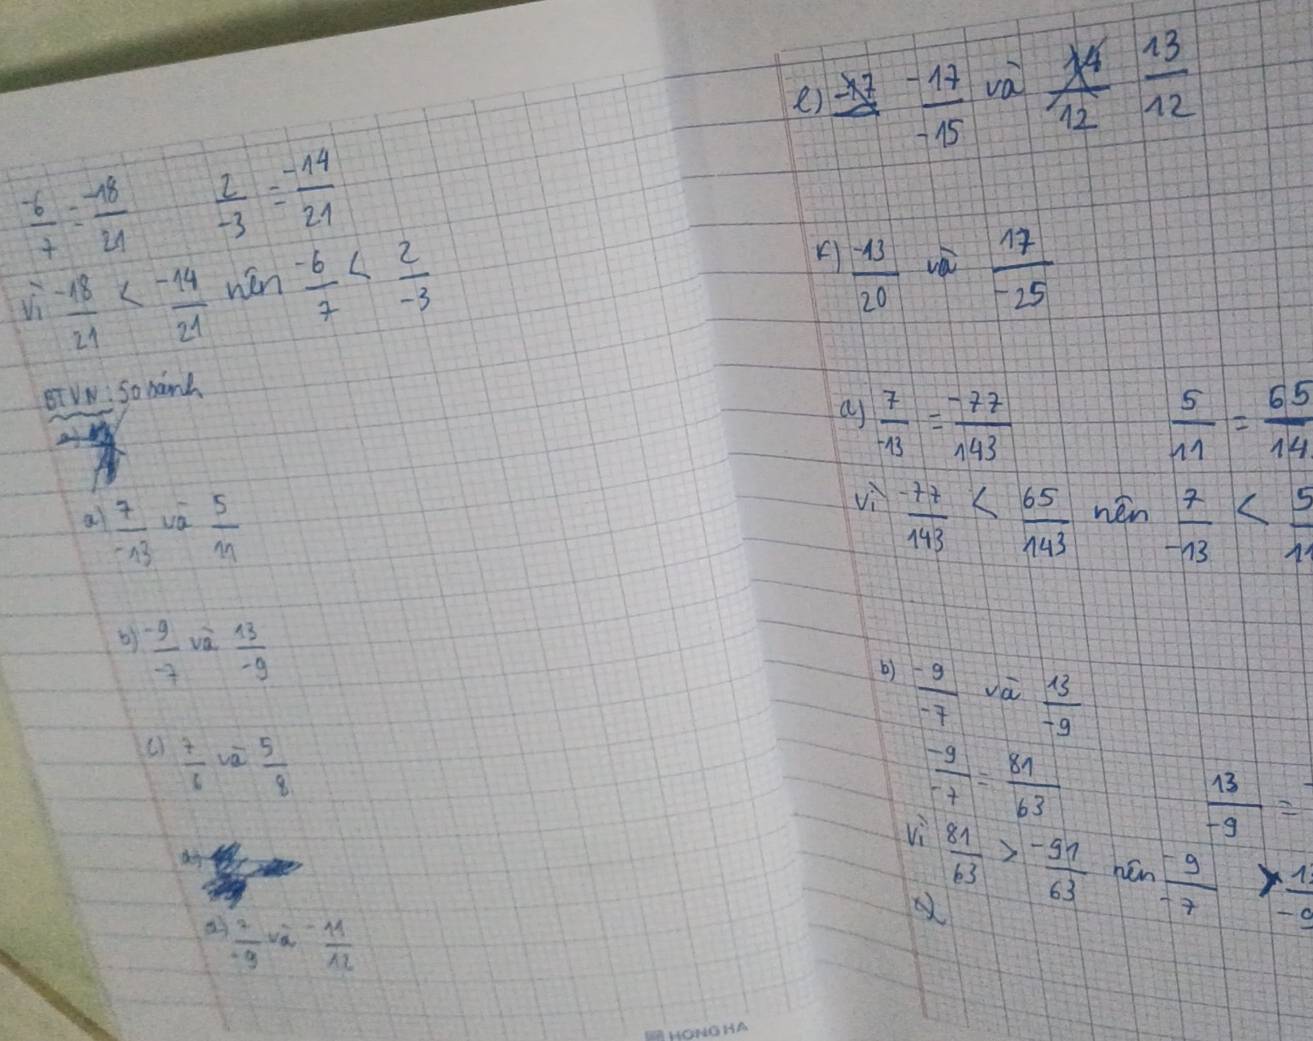 -6/7 = -18/21 2/-3 = -14/21
Vì -18/21 < -14/21 nên -6/7 < 2/-3
BTVN: So sánh
a) 7/-13 và 5/11
b) -9/-7 và 13/-9
c) 7/6 và 5/8
7/-9 và -11/12
HONG HA
e) -17/-15 và 13/12
-13/20 và 17/-25
a) 7/-13 = -77/143 5/11 = 65/14
Vì -77/143 < 65/143 nên 7/-13 < 5/11
b) -9/-7 và 13/-9
-9/-7 = 81/63 13/-9 =
Vì 81/63 > -91/63 nên -9/-7 > 13/-9